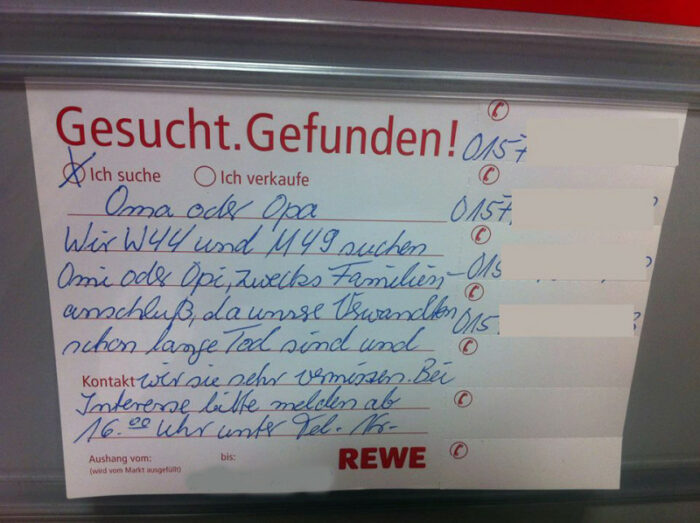 Gesucht.Gefunden!
Ich suche Ich verkaufe
Oma oder Opa
Wir W44 und M49 suchen
Omi oder Opi, zwecks Familien-
anschluß, da unsre Verwandten
schon lange Tod sind und
Kontakt wir sie sehr vermissen. Bei
Interesse bitte melden ab
16.00 Uhr unter Tel. Nr.-
Aushang vom: bis:
(wird vom Markt ausgefüllt)
REWE
0157
0157
015
015